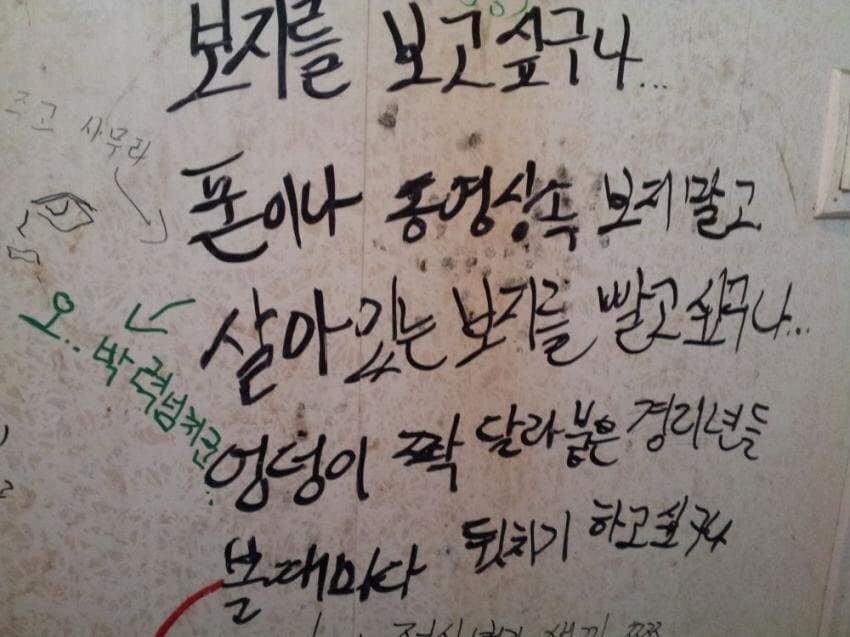 보지를 보고 싶구나...
조고 사무라
폰이나 동영상속 보지 말고
살아 있는 보지를 빨고 싶구나...
오.. 박력넘치군..
엉덩이 짝 달라붙은 경리년들
볼때마다 뒷치기 하고싶구나